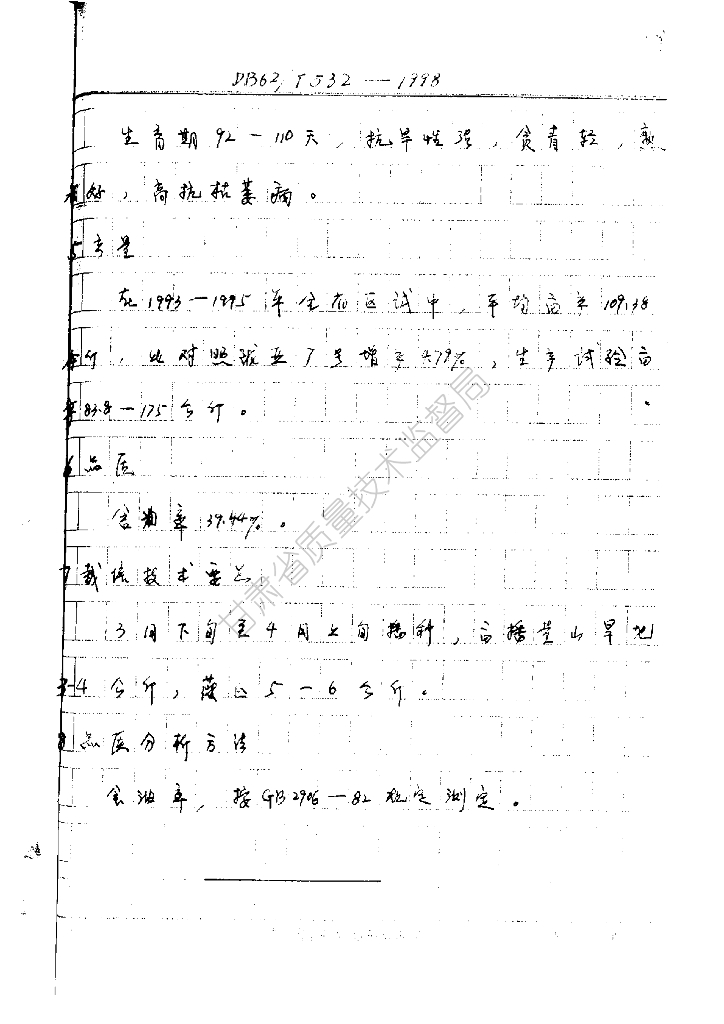 DB62/T532—1998
生育期92—110天，抗旱性强，贪青轻，熟
相好，高抗枯萎病。
5产量
在1993—1995年全省区试中，平均亩产109.38
公斤，比对照陇亚7号增产4.79%，生产试验亩
产83.8—175公斤。
6品质
含油率39.44%。
7栽培技术要点
3月下旬至4月上旬播种，亩播量山旱地
3-4公斤， 5—6公斤。
8品质分析方法
含油率，按GB2906—82规定测定。
甘肃省质量技术监督局